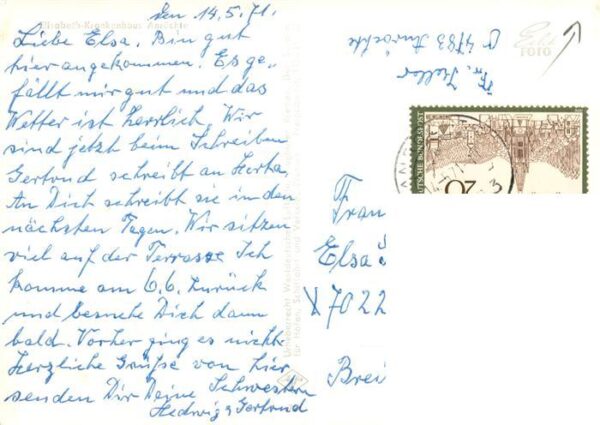 Elisabeth-Krankenhaus Anröchte
den 14.5.71.
Liebe Elsa. Bin gut
hier angekommen. Es ge-
fällt mir gut und das
Wetter ist herrlich. Wir
sind jetzt beim Schreiben
Gertrud schreibt an Herta.
An Dich schreibt sie in den
nächsten Tagen. Wir sitzen
viel auf der Terrasse Ich
komme am 6.6. zurück
und besuche Dich dann
bald. Vorher ging es nicht
Herzliche Grüße von hier
senden Dir Deine Schwestern
Hedwig & Gertrud
FOTO
4783 Anröchte
Keller
DEUTSCHE BUNDESPOST
20
Frau
Elsa
X 7022